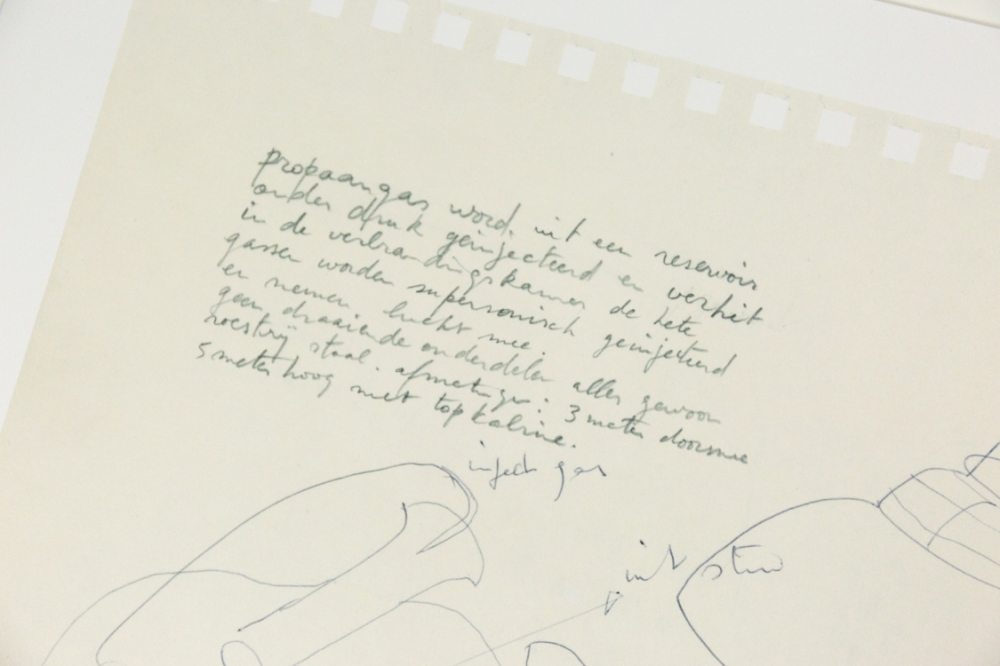 propaangas word. uit een reservoir
onder druk geïnjecteerd en verhit
in de verbrandingskamer de hete
gassen worden supersonisch geïnjecteerd
en nemen lucht mee.
geen draaiende onderdelen alles gewoon
roestvrij staal. afmetingen: 3 meter doorsnee
5 meter hoog met topkabine.
inject gas